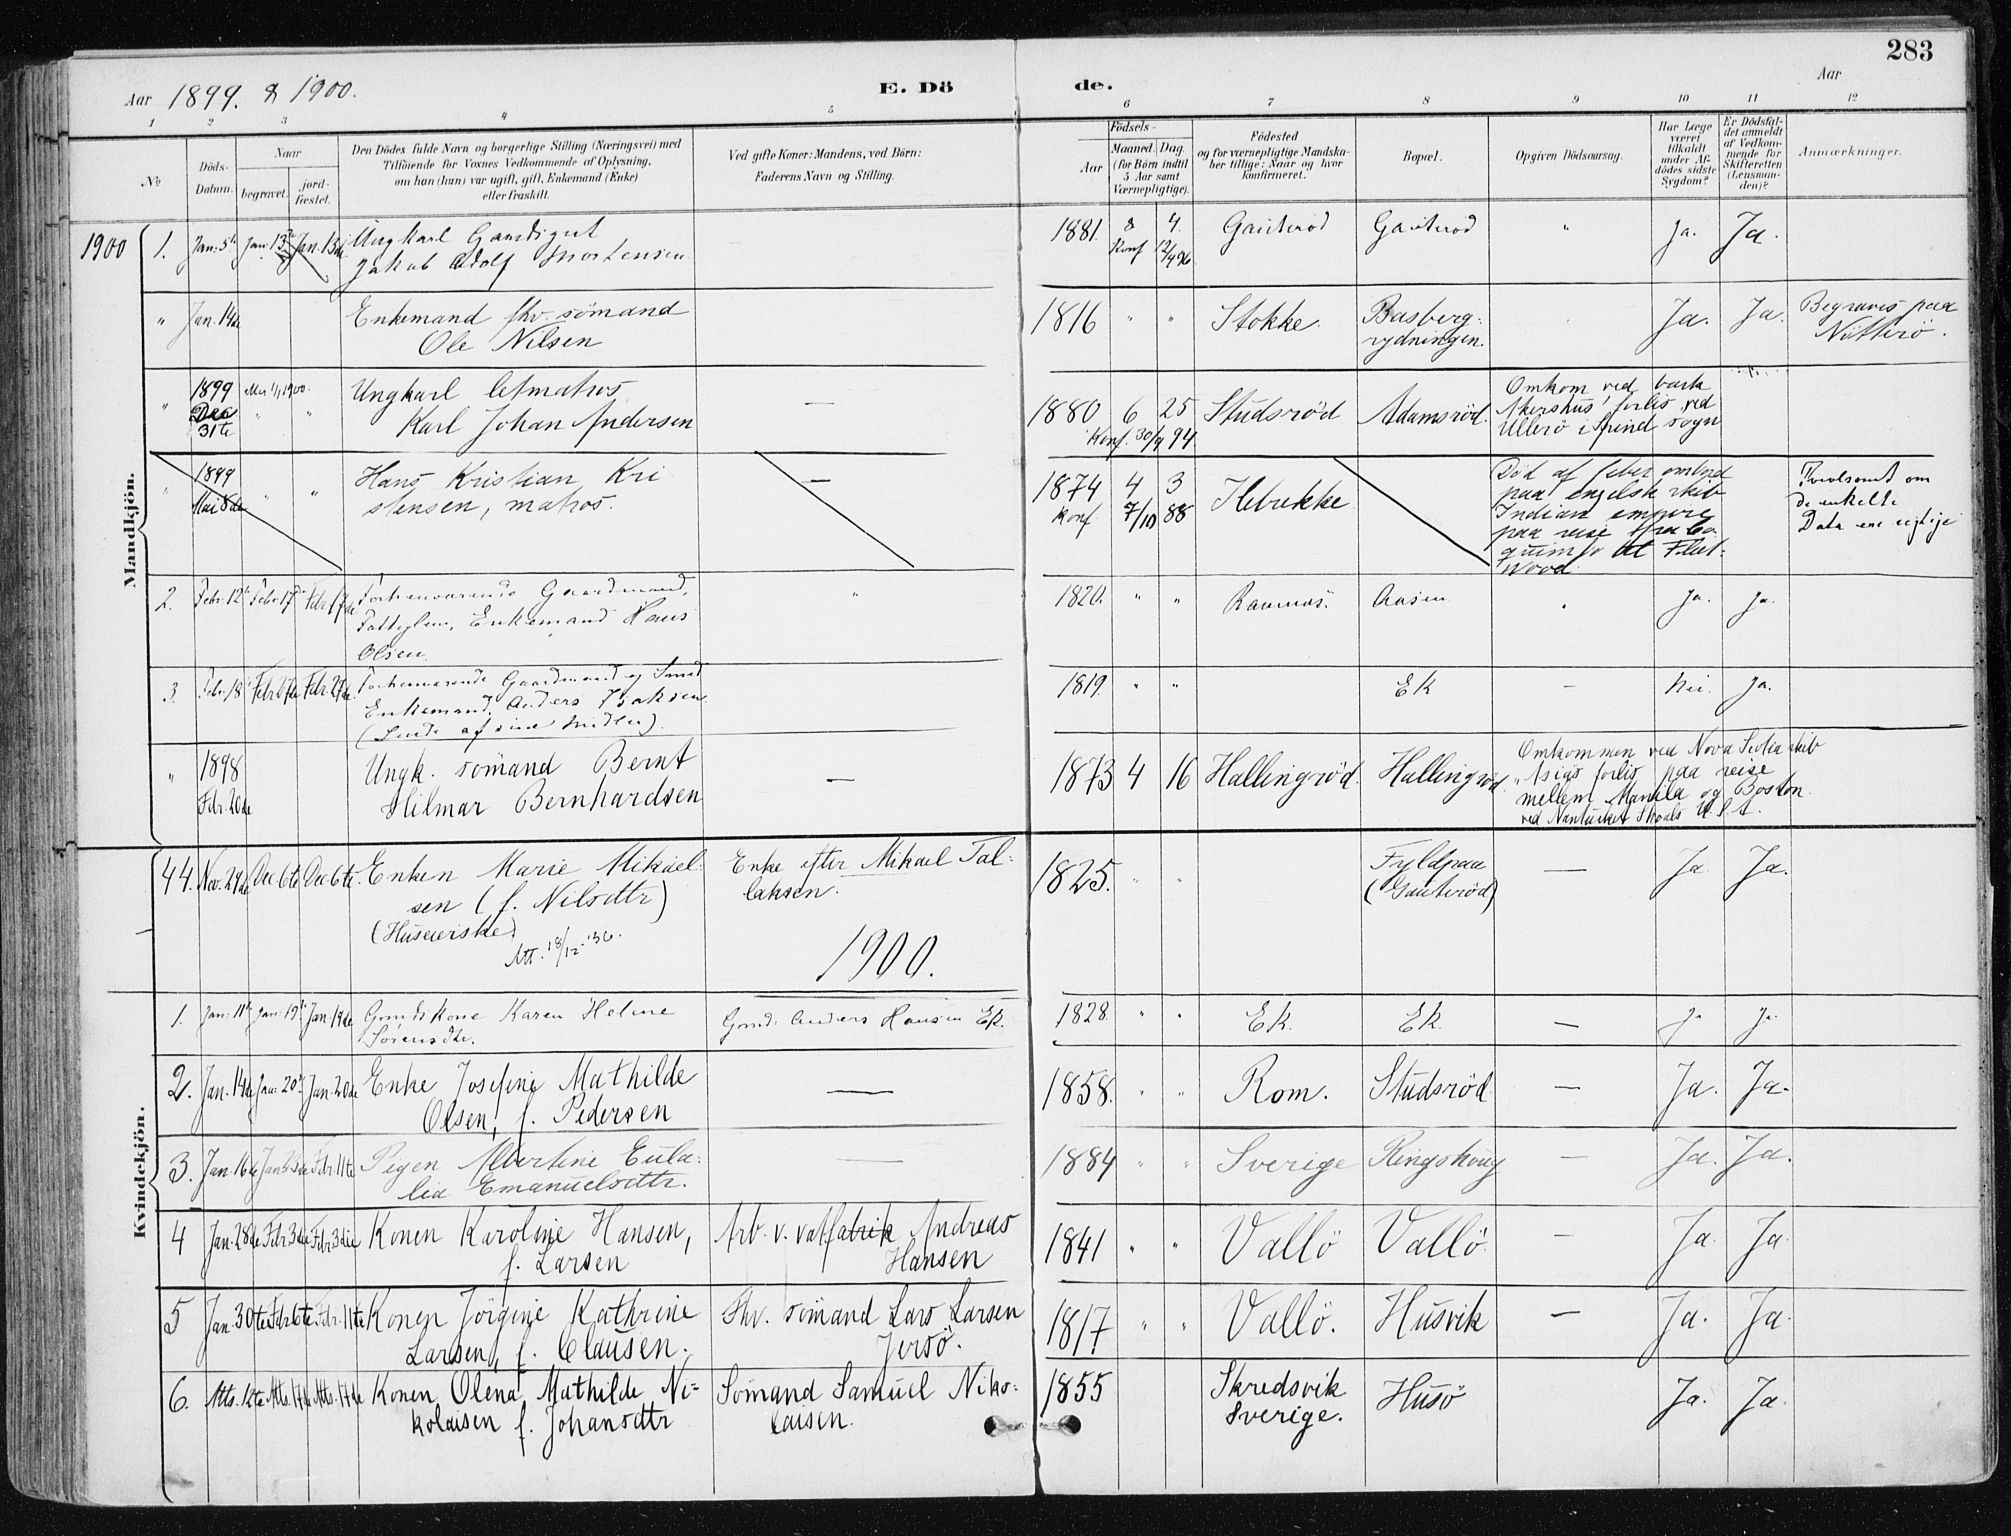 283
Aar 1899. & 1900.
E. Dö
de.
Aar
1 2 3 4 5 6 7 8 9 10 11 12
No
Döds-Datum.
Naar
begravet.
jord-fæstet.
Den Dödes fulde Navn og borgerlige Stilling (Næringsvei) med
Tilföiende for Voxnes Vedkommende af Oplysning,
om han (hun) var ugift, gift, Enkemand (Enke)
eller fraskilt.
Ved gifte Koner: Mandens, ved Börn:
Faderens Navn og Stilling.
Födsels-
Aar
Maaned. Dag.
(for Börn indtil
5 Aar samt
Værnepligtige).
Födested
og for værnepligtige Mandska-
ber tillige: Naar og hvor
Konfirmeret.
Bopæl.
Opgiven Dödsaarsag.
Har Læge
været
tilkaldt
under Af-
dödes sidste
Sygdom?
Er Dödsfal-
det anmeldt
af Vedkom-
mende for
Skifteretten
(Lensman-
den)?
Anmærkninger.
Mandkjön.
1900 1. Jan. 5te Jan. 13de Jan. 13de Ungkarl Gaardgut
Jakob Adolf Mortensen
1881. 8 4. Gauterød Gauterød " Ja. Ja.
Konf 12/4 96
" Jan. 14de Enkemand fhv. sömand
Ole Nilsen
1816 " " Stokke. Basberg-
rydningen. Ja. Ja. Begraves paa
Nötterö.
" 1899 Dec 31te Ungkarl letmatros
Karl Johan Andersen
—
1880 6 25 Studsrød Adamsröd.
Konf. 30/9 94
Omkom ved bark
Akershus' forlis ved
Ullerö i Spind sogn
" 1899 Mai 8de " " Hans Kristian Kri
stensen, matros.
—
1874 4 3 Ilebrekke
Konf. 7/10 88
Död af feber ombord
paa engelsk skib
Indian empire
paa reise fra Co
quimbo til Fleet-
wood.
Tvivlsomt om
de enkelte
Data ere rigtige
2. Febr. 12te Febr. 17de Febr. 17de Forhenværende Gaardmand,
Fattiglem, Enkemand Hans
Olsen
"
1820. " " Ramnæs. Aasen " Ja. Ja.
3. Febr. 18 Febr. 27de Febr. 27de Forhenværende Gaardmand og Smed
Enkemand Anders Isaksen
(Levede af sine Midler).
1819. " " Ek — Nei. Ja.
" 1898 Febr. 20de Ungk. sömand Bernt
Hilmar Bernhardsen
—
1873 4 16 Hallingröd. Hallingröd.
Omkommen ved Nova Scotia skib
„Asias forlis paa reise
mellem Manila og Boston
ved Nantucket Shoals U.S.A.
Kvindekjön.
44. Nov. 24de Dec. 6te Dec. 6te. Enken Marie Mikael-
sen (f. Nilsdtr)
(Huseierske)
Att. 18/12-'36.
Enke efter Mikael Tal-
laksen.
1825. " " Fyldpaa
(Gauteröd) — Ja Ja.
1900.
1. Jan. 11te Jan. 19de Jan 19de Grmdskone Karen Helene
Sörensdtr.
Grmd. Anders Hansen Ek.
1828. " " Ek. Ek. — Ja Ja.
2. Jan. 14de Jan. 20de Jan. 20de Enke Josefine Mathilde
Olsen, f. Pedersen
—
1858. " " Rom. Studsröd — Ja. Ja.
3. Jan. 16de Jan 23de Febr. 11te Pigen Albertine Eula-
lia Emanuelsdtr.
—
1884 " " Sverige Ringshoug — Ja. Ja.
4 Jan. 28de Febr. 3die Febr. 3die Konen Karoline Hansen,
f. Larsen
Arb. v. valfabrik Andreas
Hansen
1841 " " Vallö Vallö. — Ja. Ja.
5 Jan. 30te Febr. 6te Febr. 11te Konen Jörgine Kathrine
Larsen, f. Clausen.
Fhv. sömand Lars Larsen
Jersö.
1817 " " Vallö. Husvik — Ja. Ja.
6. Mts. 12te Mts. 17de Mts. 17de Konen Olena Mathilde Ni-
kolaisen f. Johansdtr
Sömand Samuel Niko-
laisen.
1855 Skredsvik
Sverige. Husö Ja. Ja.